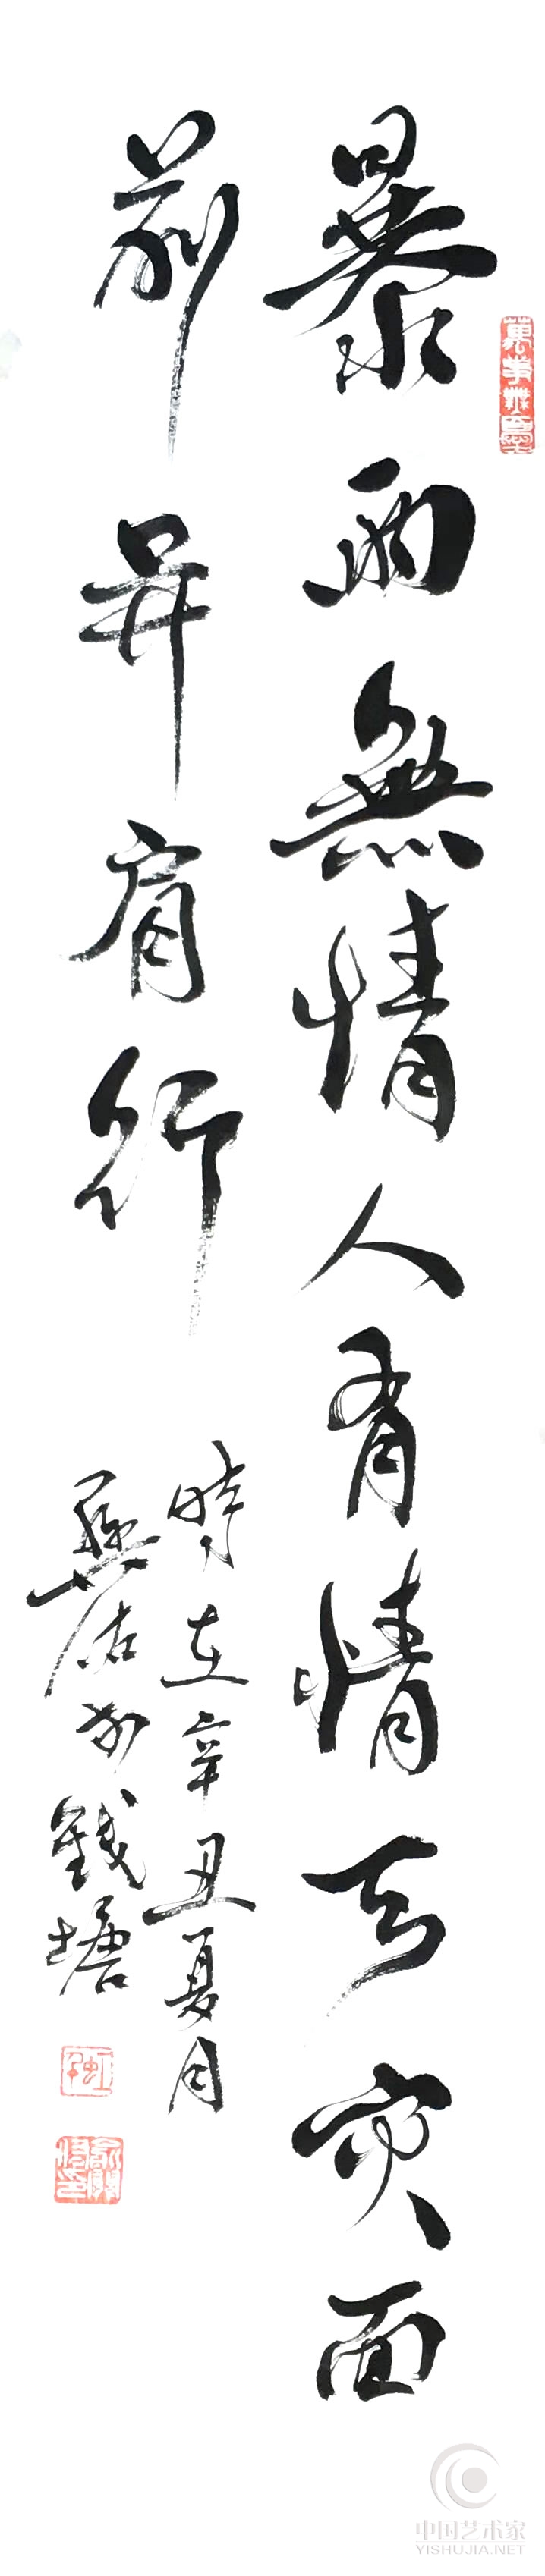 暴雨無情人有情天灾面
前并肩行
時在辛丑夏月
於錢塘
中国艺术家
YISHUJIA.NET